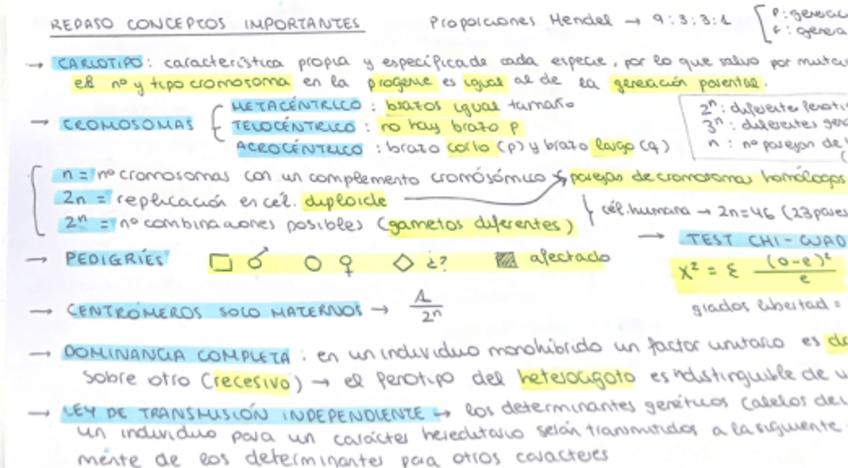 REPASO CONCEPTOS IMPORTANTES
Proporciones Mendel → 9:3:3:1 [P: generac
F: genera
→ CARIOTIPO: característica propia y específica de cada especie, por lo que salvo por mutac
el nº y tipo cromosoma en la progenie es igual al de la generación parental.
→ CROMOSOMAS { METACÉNTRICO: brazos igual tamaño
TELOCÉNTRICO: no hay brazo p
ACROCÉNTRICO: brazo corto (p) y brazo largo (q)
2ⁿ: diferentes fenoti
3ⁿ: diferentes gen
n: nº parejas de
n = nº cromosomas con un complemento cromosómico
parejas de cromosomas homólogos
2n = replicación en cél. duploide
2ⁿ = nº combinaciones posibles (gametos diferentes)
cél. humana → 2n=46 (23 pares
→ PEDIGRÍES □ ♂ ○ ♀ ◇ ¿? ▨ afectado
→ TEST CHI-CUAD
X² = Σ (o-e)²/e
grados libertad =
→ CENTRÓMEROS SOLO MATERNOS → 1/2ⁿ
→ DOMINANCIA COMPLETA: en un individuo monohíbrido un factor unitario es do
sobre otro (recesivo) → el fenotipo del heterocigoto es indistinguible de u
→ LEY DE TRANSMISIÓN INDEPENDIENTE → los determinantes genéticos (alelos de
un individuo para un carácter hereditario serán transmitidos a la siguiente
mente de los determinantes para otros caracteres